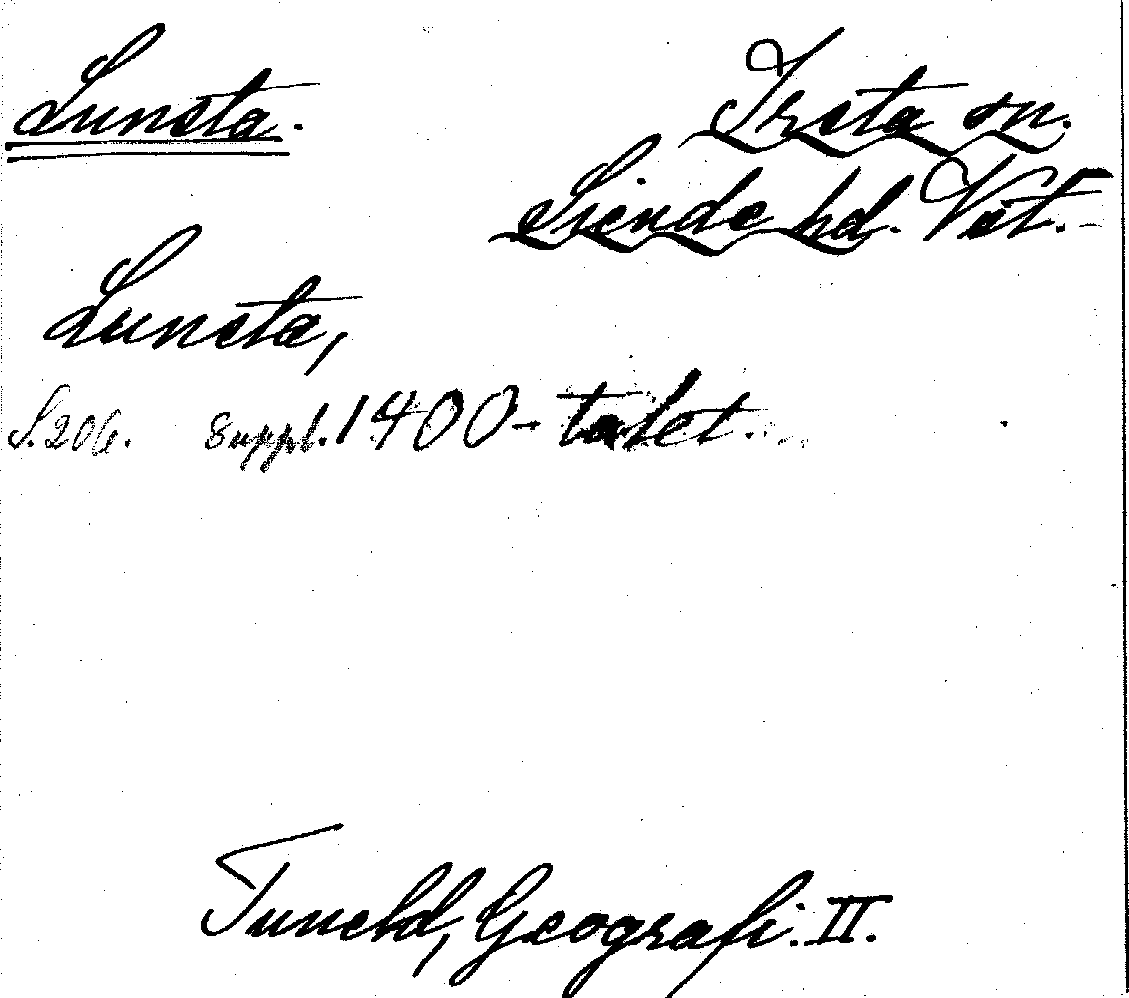 Lunsta.
Irsta sn.
Siende hd. Vst.
Lunsta,
S. 206. Suppl. 1400-talet.
Tuneld, Geografi. II.